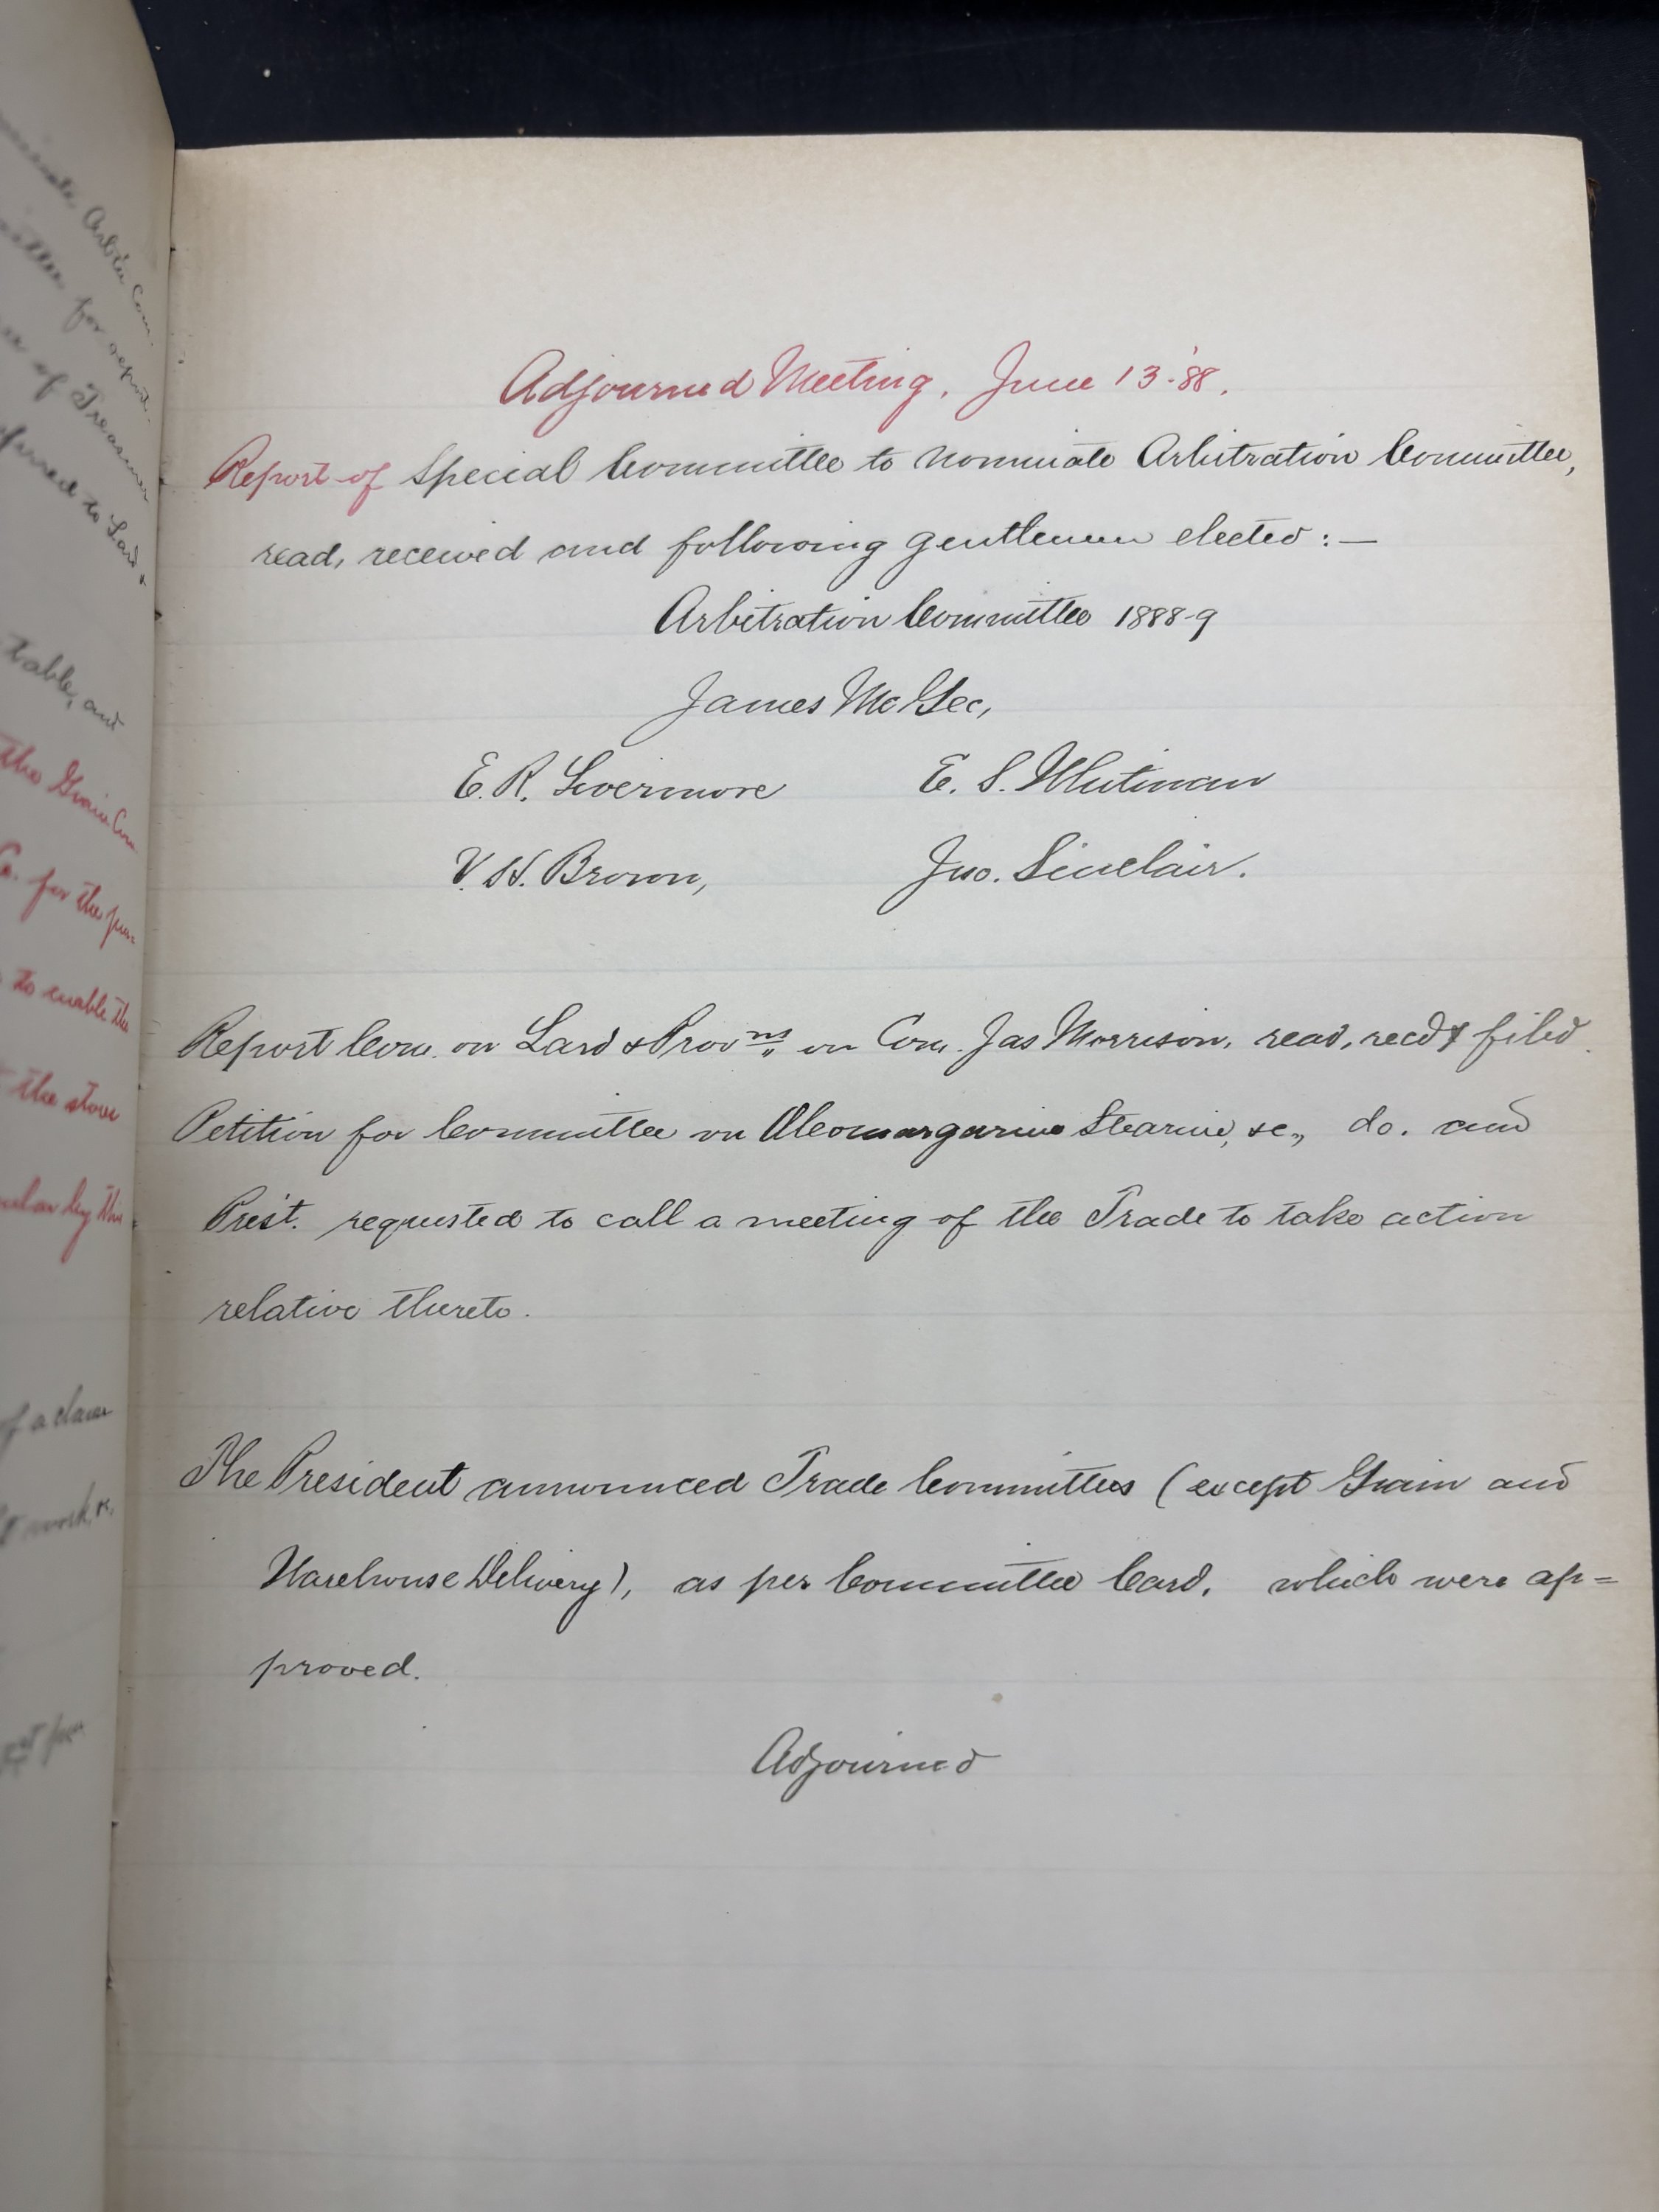 Adjourned Meeting, June 13-'88.
Report of Special Committee to nominate Arbitration Committee,
read, received and following gentlemen elected:—
Arbitration Committee 1888-9
James McGee,
E. R. Livermore E. S. Whitman
V. H. Brown, Jno. Sinclair.
Report Com. on Lard & Provns. on Com. Jas Morrison, read, recd & filed
Petition for Committee on Oleomargarine Stearine, &c., do. and
Prest. requested to call a meeting of the Trade to take action
relative thereto.
The President announced Trade Committees (except Grain and
Warehouse Delivery), as per Committee Card, which were ap=
proved.
Adjourned
Arb'n Com.
for report.
of Treasurer
to Lard &
table, and
the Grain Com.
Co. for the pur=
to enable the
the store
by this
of a
work &c.